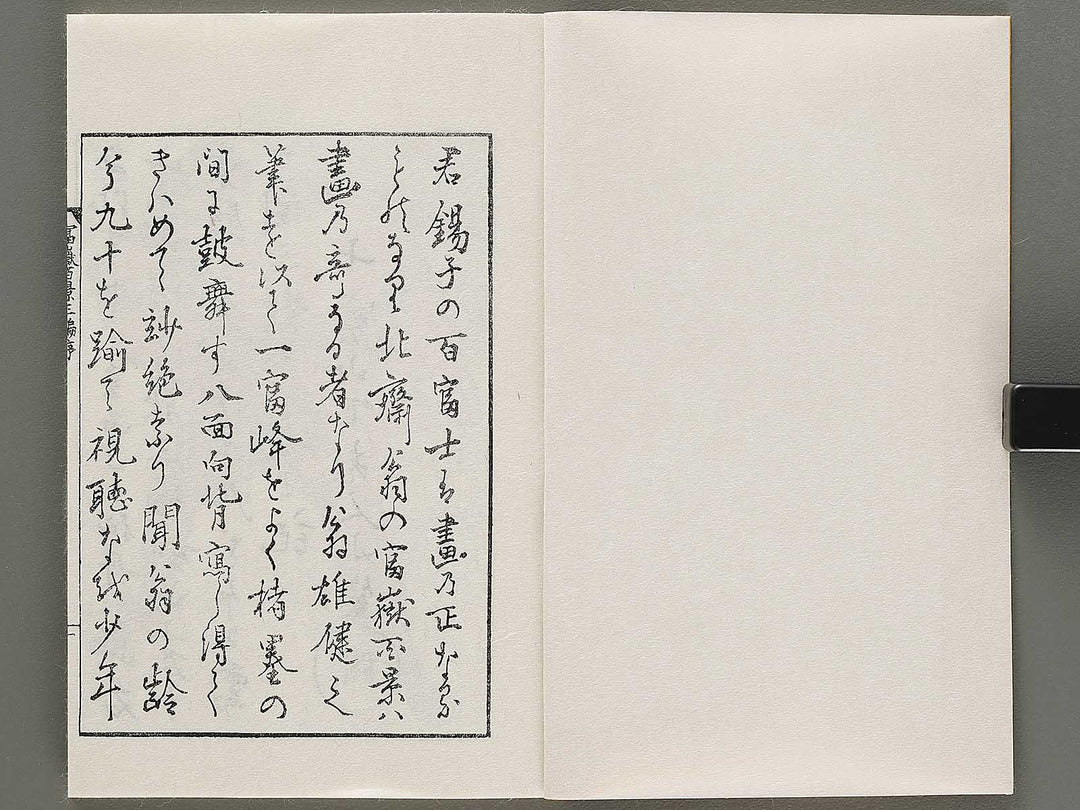 君錫子の百富士は畫乃正なる
ものなり北齋翁の富嶽百景ハ
畫乃奇なる者なり翁雄健之
筆を以て一富峰をよく楮墨の
間に鼓舞す八面向背寫し得て
きハめて妙絶なり聞翁の齢
今九十を踰て視聴なほ少年
富嶽百景三編序